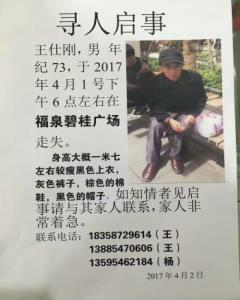 寻人启事
王仕刚，男 年
纪73，于2017
年4月1号下
午6点左右在
福泉碧桂广场
走失。
身高大概一米七
左右较瘦黑色上衣，
灰色裤子，棕色的棉
鞋，黑色的帽子。如知情者见启
事请与其家人联系，家人非
常着急。
联系电话：18358729614（王）
13885470606（王）
13595462184（杨）
2017年4月2日